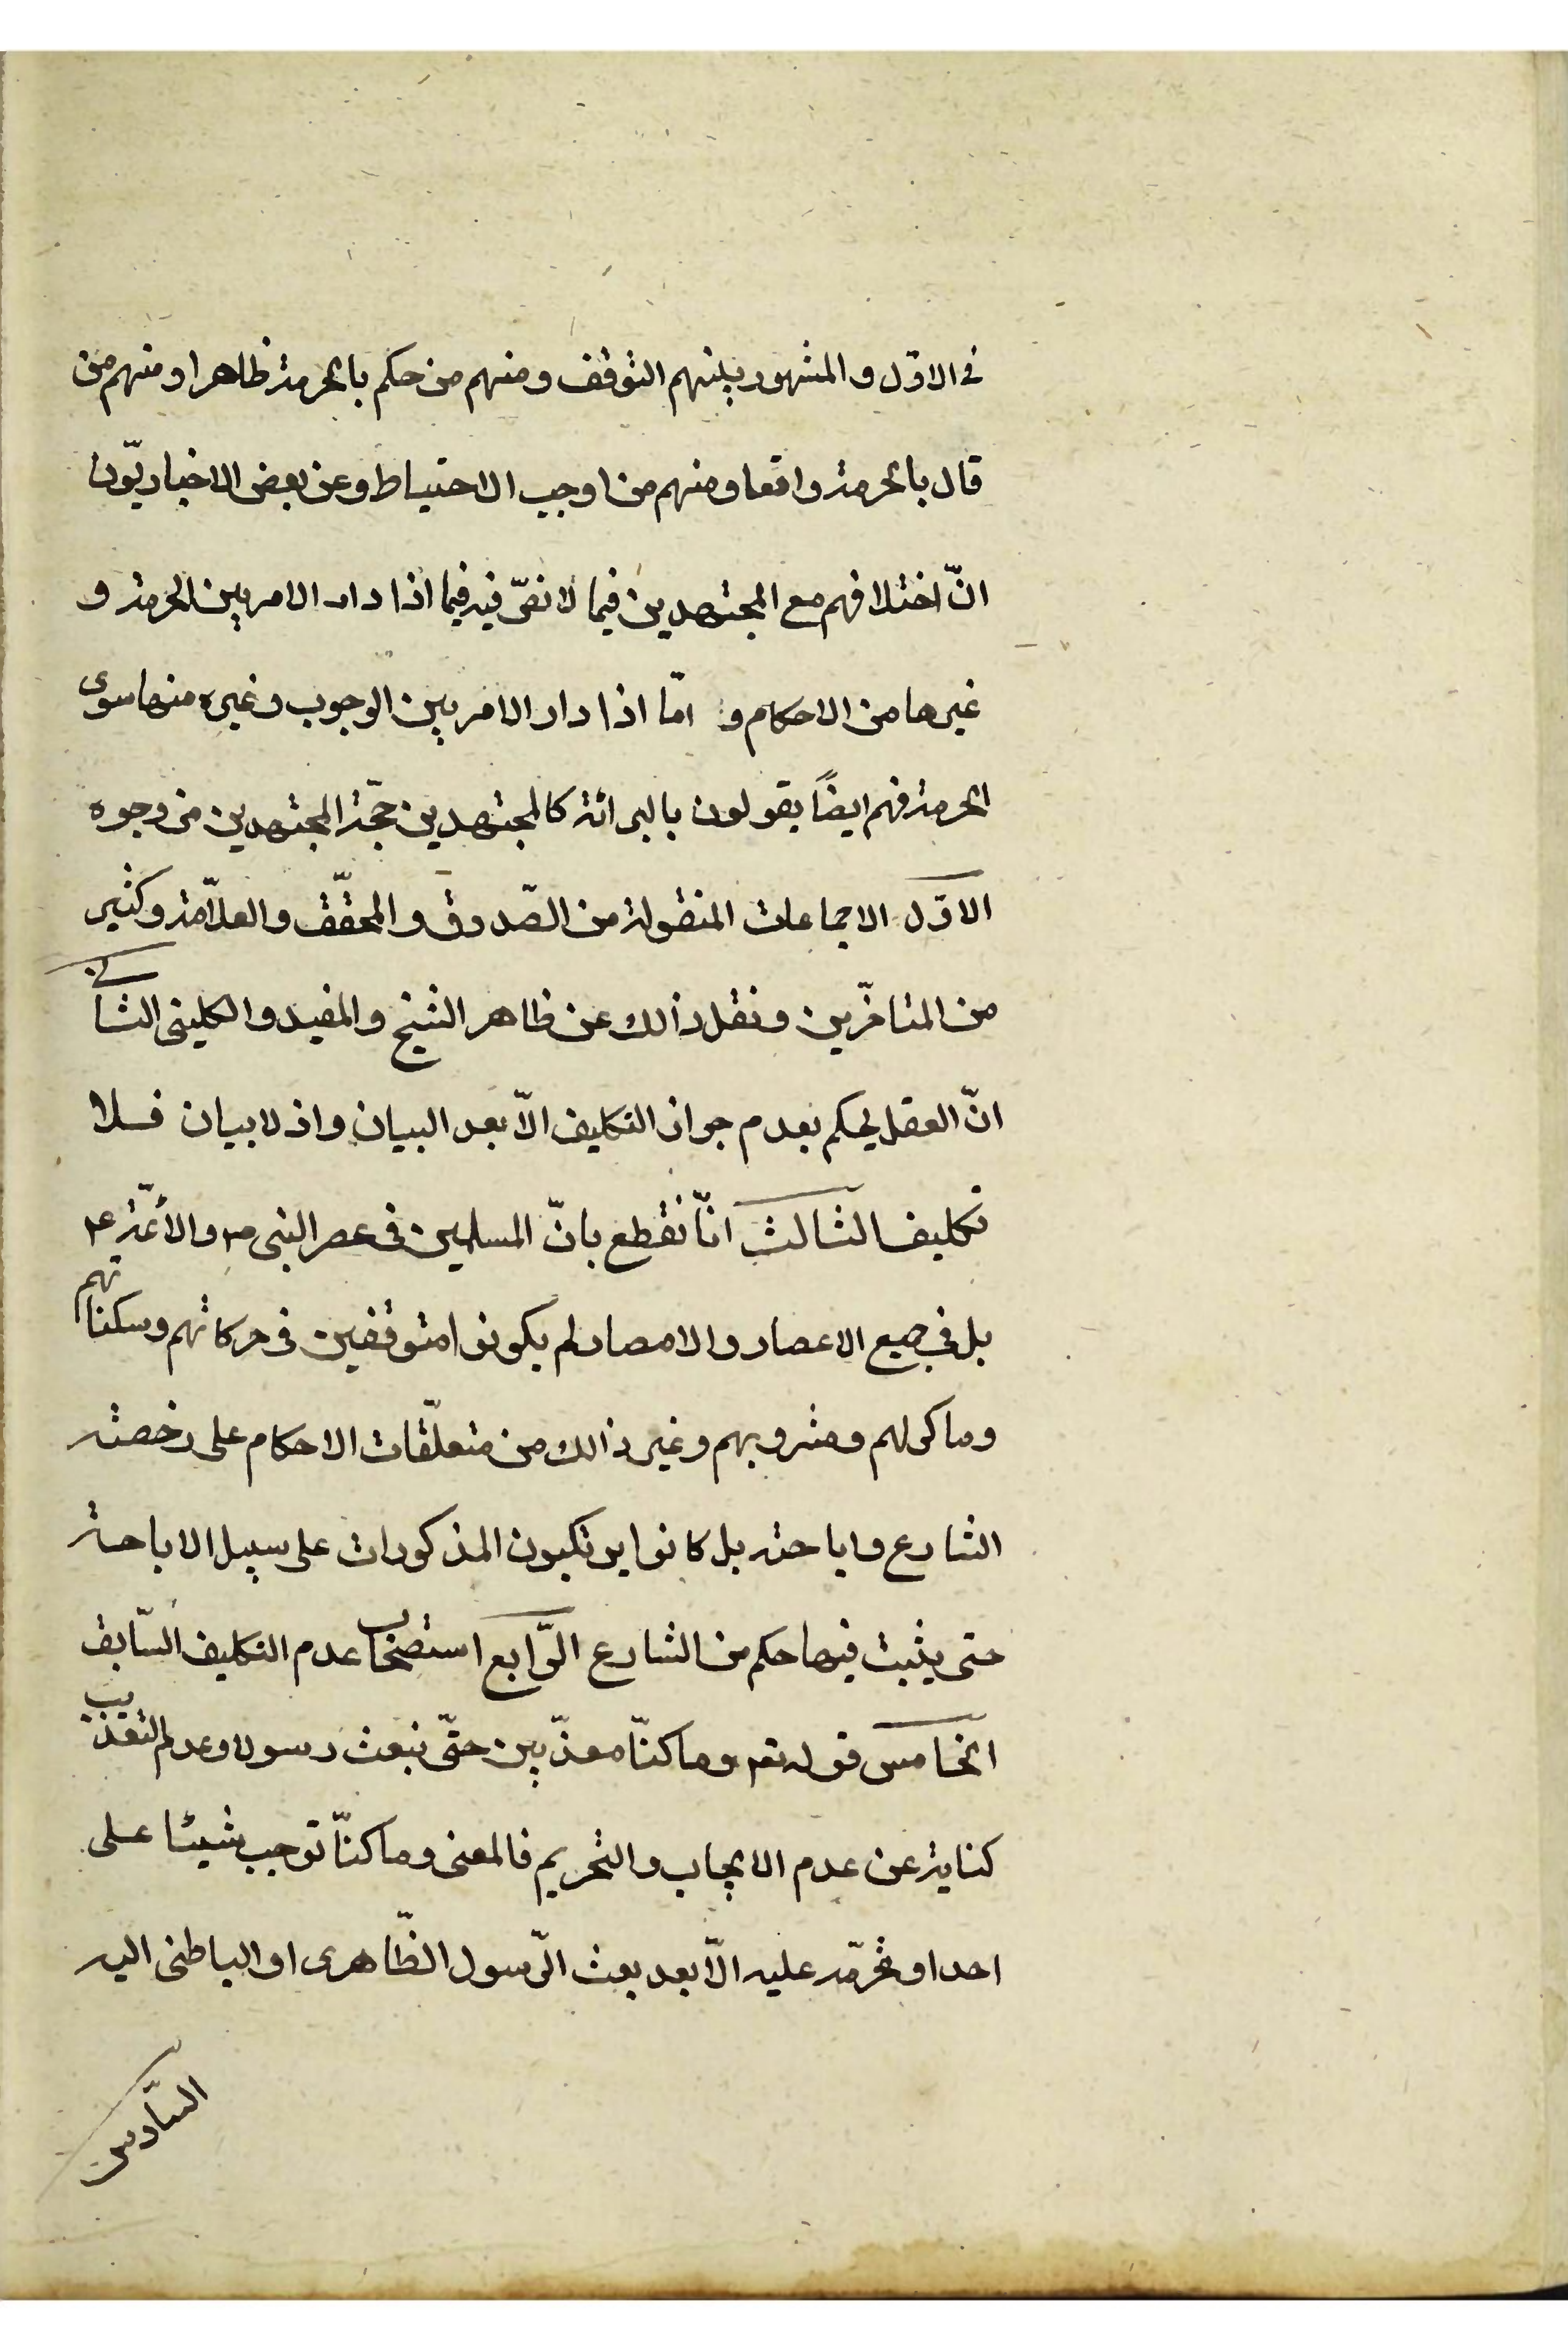 فى الاوّل والمشهور بينهم التوقف ومنهم من حكم بالحرمة ظاهرا ومنهم من
قال بالحرمة واقعا ومنهم من اوجب الاحتياط وعن بعض الاخباريّون
انّ اختلافهم مع المجتهدين فيما لا نصّ فيه فيما اذا دار الامر بين الحرمة و
غيرها من الاحكام و امّا اذا دار الامر بين الوجوب وغيره منها سوى
الحرمة فهم ايضاً يقولون بالبرائة كالمجتهدين حجّة المجتهدين من وجوه
الاوّل الاجماعات المنقولة من الصّدوق والمحقّق والعلّامة وكثير
من المتاخّرين ونقل ذالك عن ظاهر الشيخ والمفيد والكلينى الثانى
انّ العقل يحكم بعدم جواز التكليف الّا بعد البيان واذ لا بيان فلا
تكليف الثالث انّا نقطع بانّ المسلمين فى عصر النبى ص والأئمّة ع
بل فى جميع الاعصار والامصار لم يكونوا متوقفين فى حركاتهم وسكناتهم
وماكولهم ومشروبهم وغير ذالك من متعلّقات الاحكام على رخصة
الشارع واباحته بل كانوا يرتكبون المذكورات على سبيل الاباحة
حتى يثبت فيها حكم من الشارع الرّابع استصحاب عدم التكليف السّابق
الخامس قوله تعم وما كنّا معذّبين حتّى نبعث رسولا وعدم التعذيب
كناية عن عدم الايجاب والتحريم فالمعنى وما كنّا نوجب شيئا على
احد او نحرّمه عليه الّا بعد بعث الرّسول الظّاهرى او الباطنى اليه
السّادس